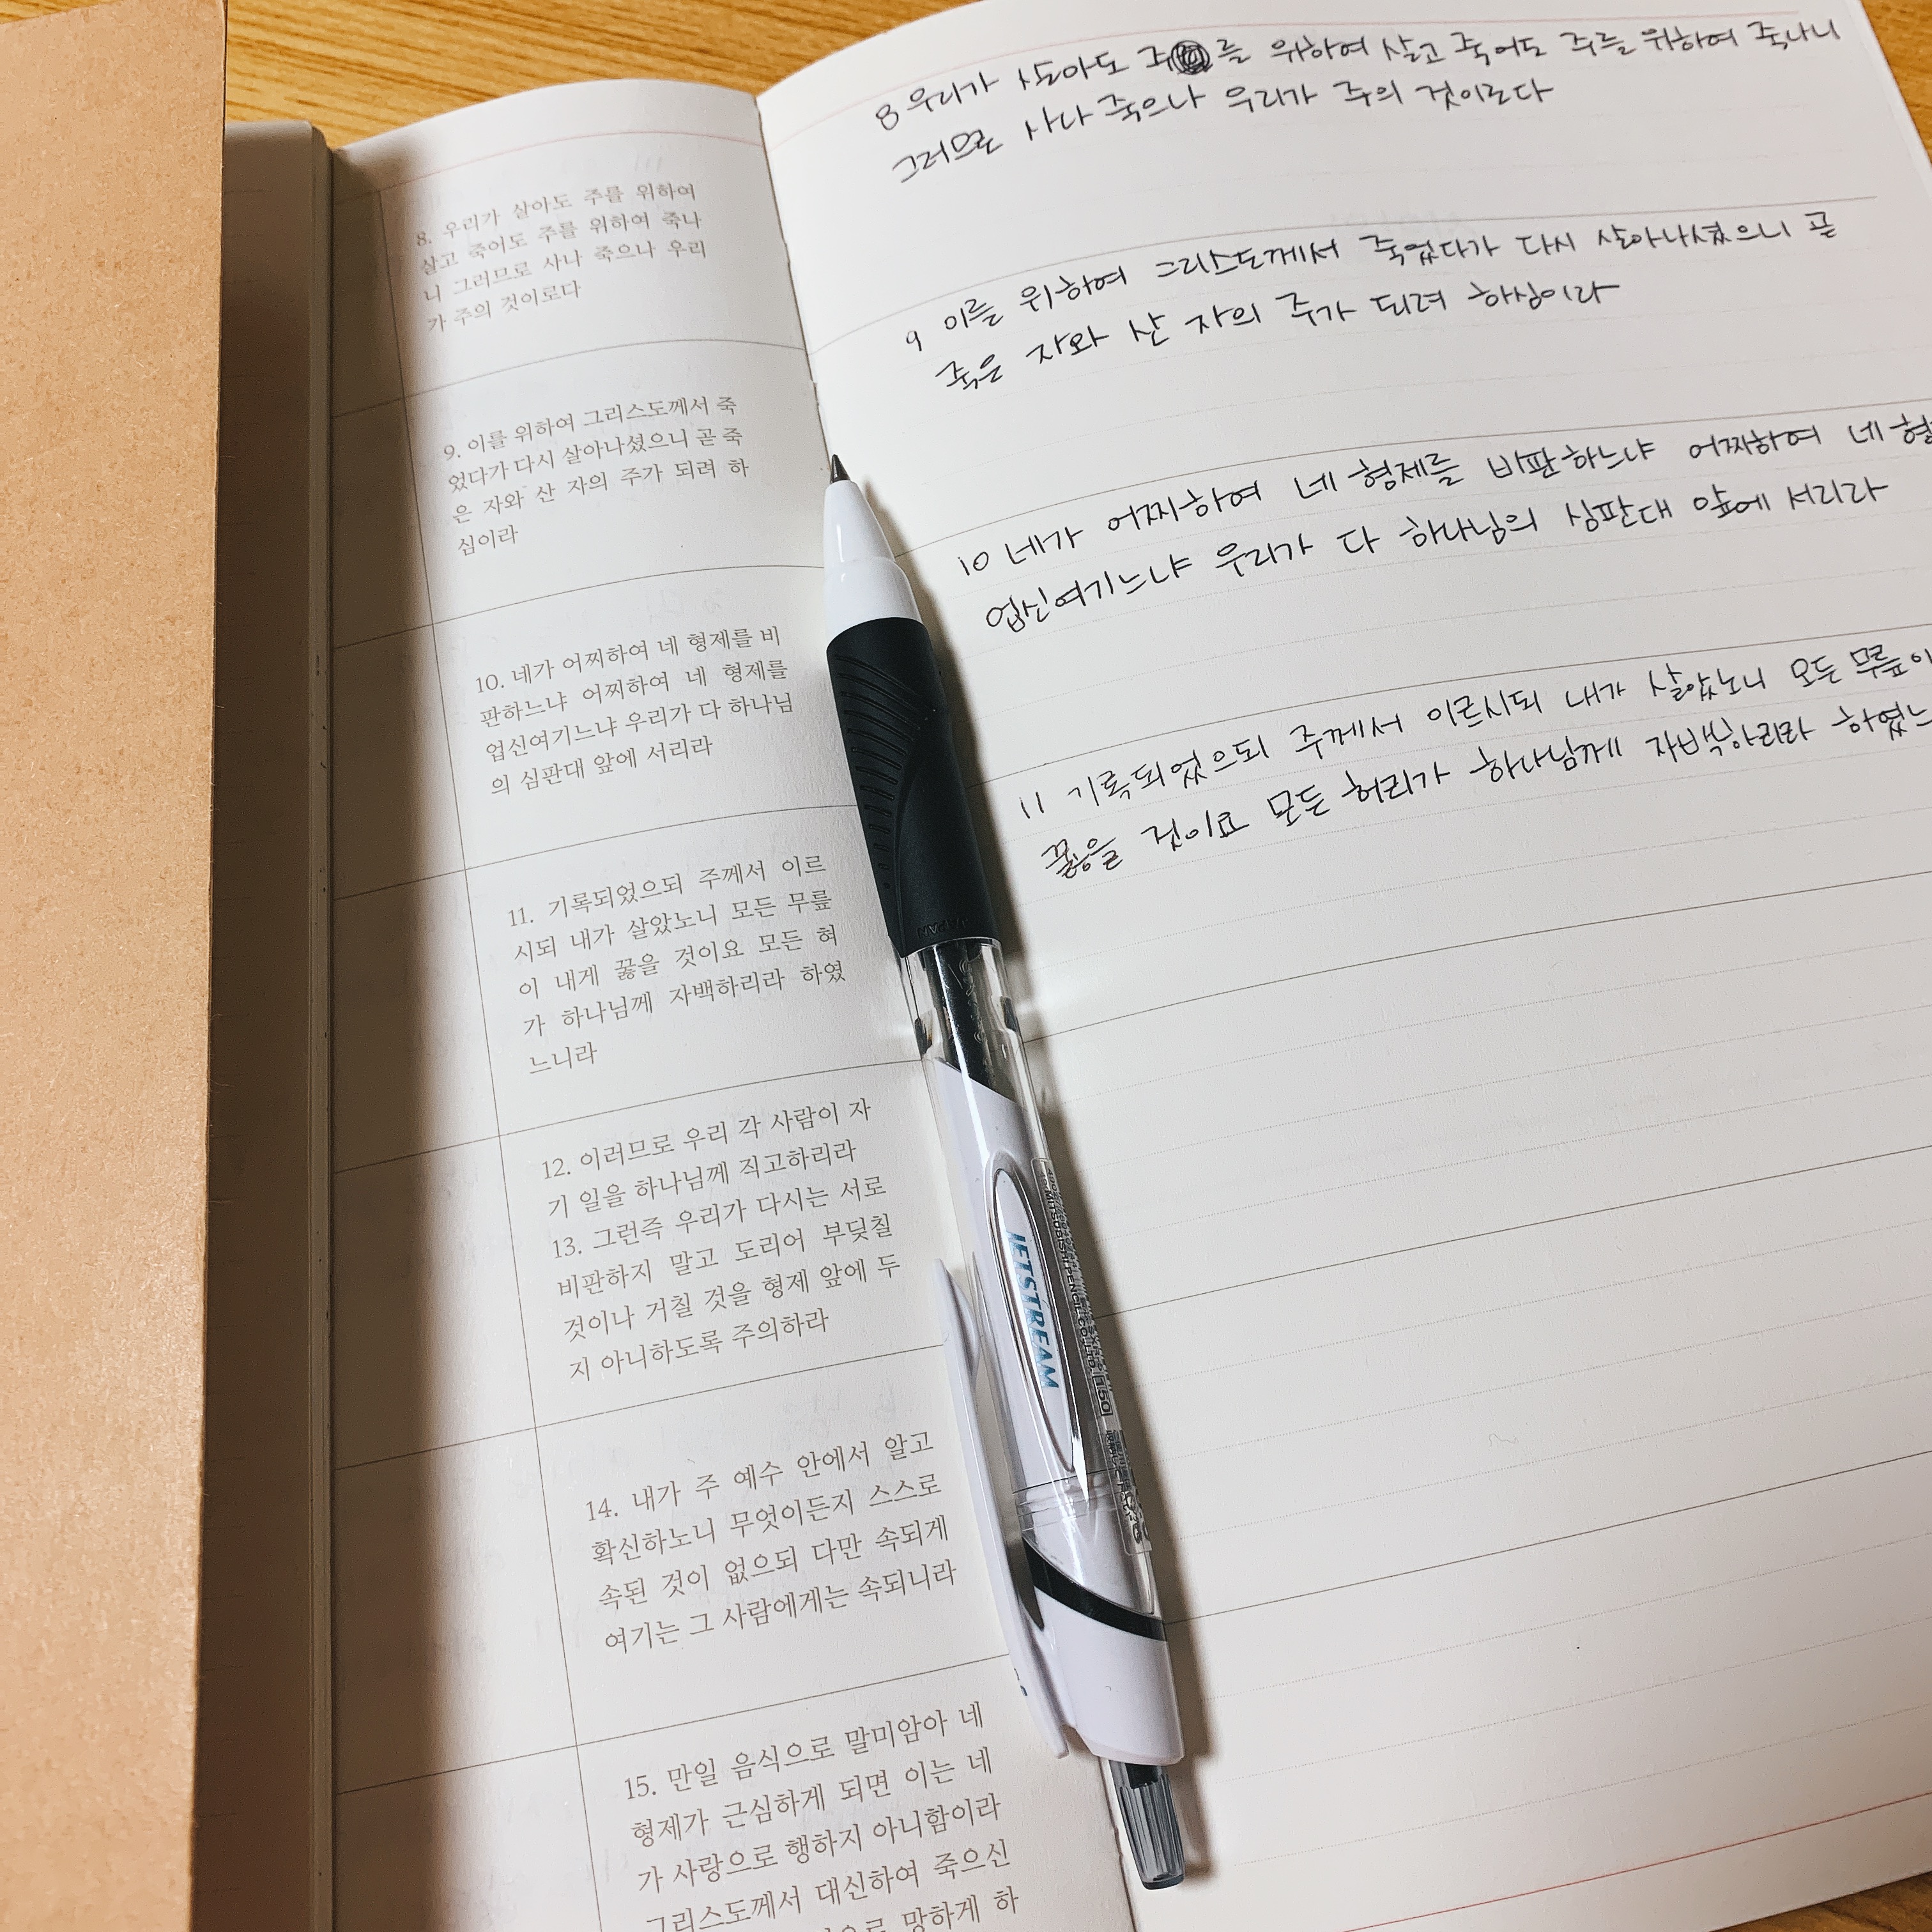 8. 우리가 살아도 주를 위하여
살고 죽어도 주를 위하여 죽나
니 그러므로 사나 죽으나 우리
가 주의 것이로다
9. 이를 위하여 그리스도께서 죽
었다가 다시 살아나셨으니 곧 죽
은 자와 산 자의 주가 되려 하
심이라
10. 네가 어찌하여 네 형제를 비
판하느냐 어찌하여 네 형제를
업신여기느냐 우리가 다 하나님
의 심판대 앞에 서리라
11. 기록되었으되 주께서 이르
시되 내가 살았노니 모든 무릎
이 내게 꿇을 것이요 모든 혀
가 하나님께 자백하리라 하였
느니라
12. 이러므로 우리 각 사람이 자
기 일을 하나님께 직고하리라
13. 그런즉 우리가 다시는 서로
비판하지 말고 도리어 부딪칠
것이나 거칠 것을 형제 앞에 두
지 아니하도록 주의하라
14. 내가 주 예수 안에서 알고
확신하노니 무엇이든지 스스로
속된 것이 없으되 다만 속되게
여기는 그 사람에게는 속되니라
15. 만일 음식으로 말미암아 네
형제가 근심하게 되면 이는 네
가 사랑으로 행하지 아니함이라
그리스도께서 대신하여 죽으신
망하게 하
8 우리가 살아도 주를 위하여 살고 죽어도 주를 위하여 죽나니
그러므로 사나 죽으나 우리가 주의 것이로다
9 이를 위하여 그리스도께서 죽었다가 다시 살아나셨으니 곧
죽은 자와 산 자의 주가 되려 하심이라
10 네가 어찌하여 네 형제를 비판하느냐 어찌하여 네 형
업신여기느냐 우리가 다 하나님의 심판대 앞에 서리라
11 기록되었으되 주께서 이르시되 내가 살았노니 모든 무릎이
꿇을 것이요 모든 허리가 하나님께 자백하리라 하였느
JAPAN
JETSTREAM
MITSUBISHI PENCIL CO.,LTD. 150